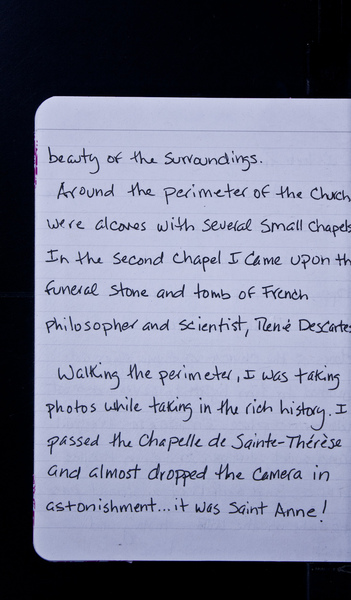 beauty of the surroundings.
Around the perimeter of the Church
were alcoves with several small chapels
In the second chapel I came upon th
funeral stone and tomb of French
philosopher and scientist, René Descartes
Walking the perimeter, I was taking
photos while taking in the rich history. I
passed the Chapelle de Sainte-Thérèse
and almost dropped the camera in
astonishment...it was Saint Anne!